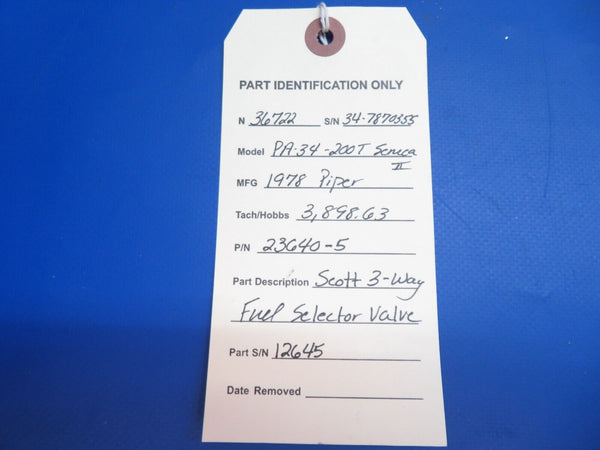 PART IDENTIFICATION ONLY
N 36722 S/N 34-7870355
Model PA-34-200T Seneca
II
MFG 1978 Piper
Tach/Hobbs 3,898.63
P/N 23640-5
Part Description Scott 3-Way
Fuel Selector Valve
Part S/N 12645
Date Removed